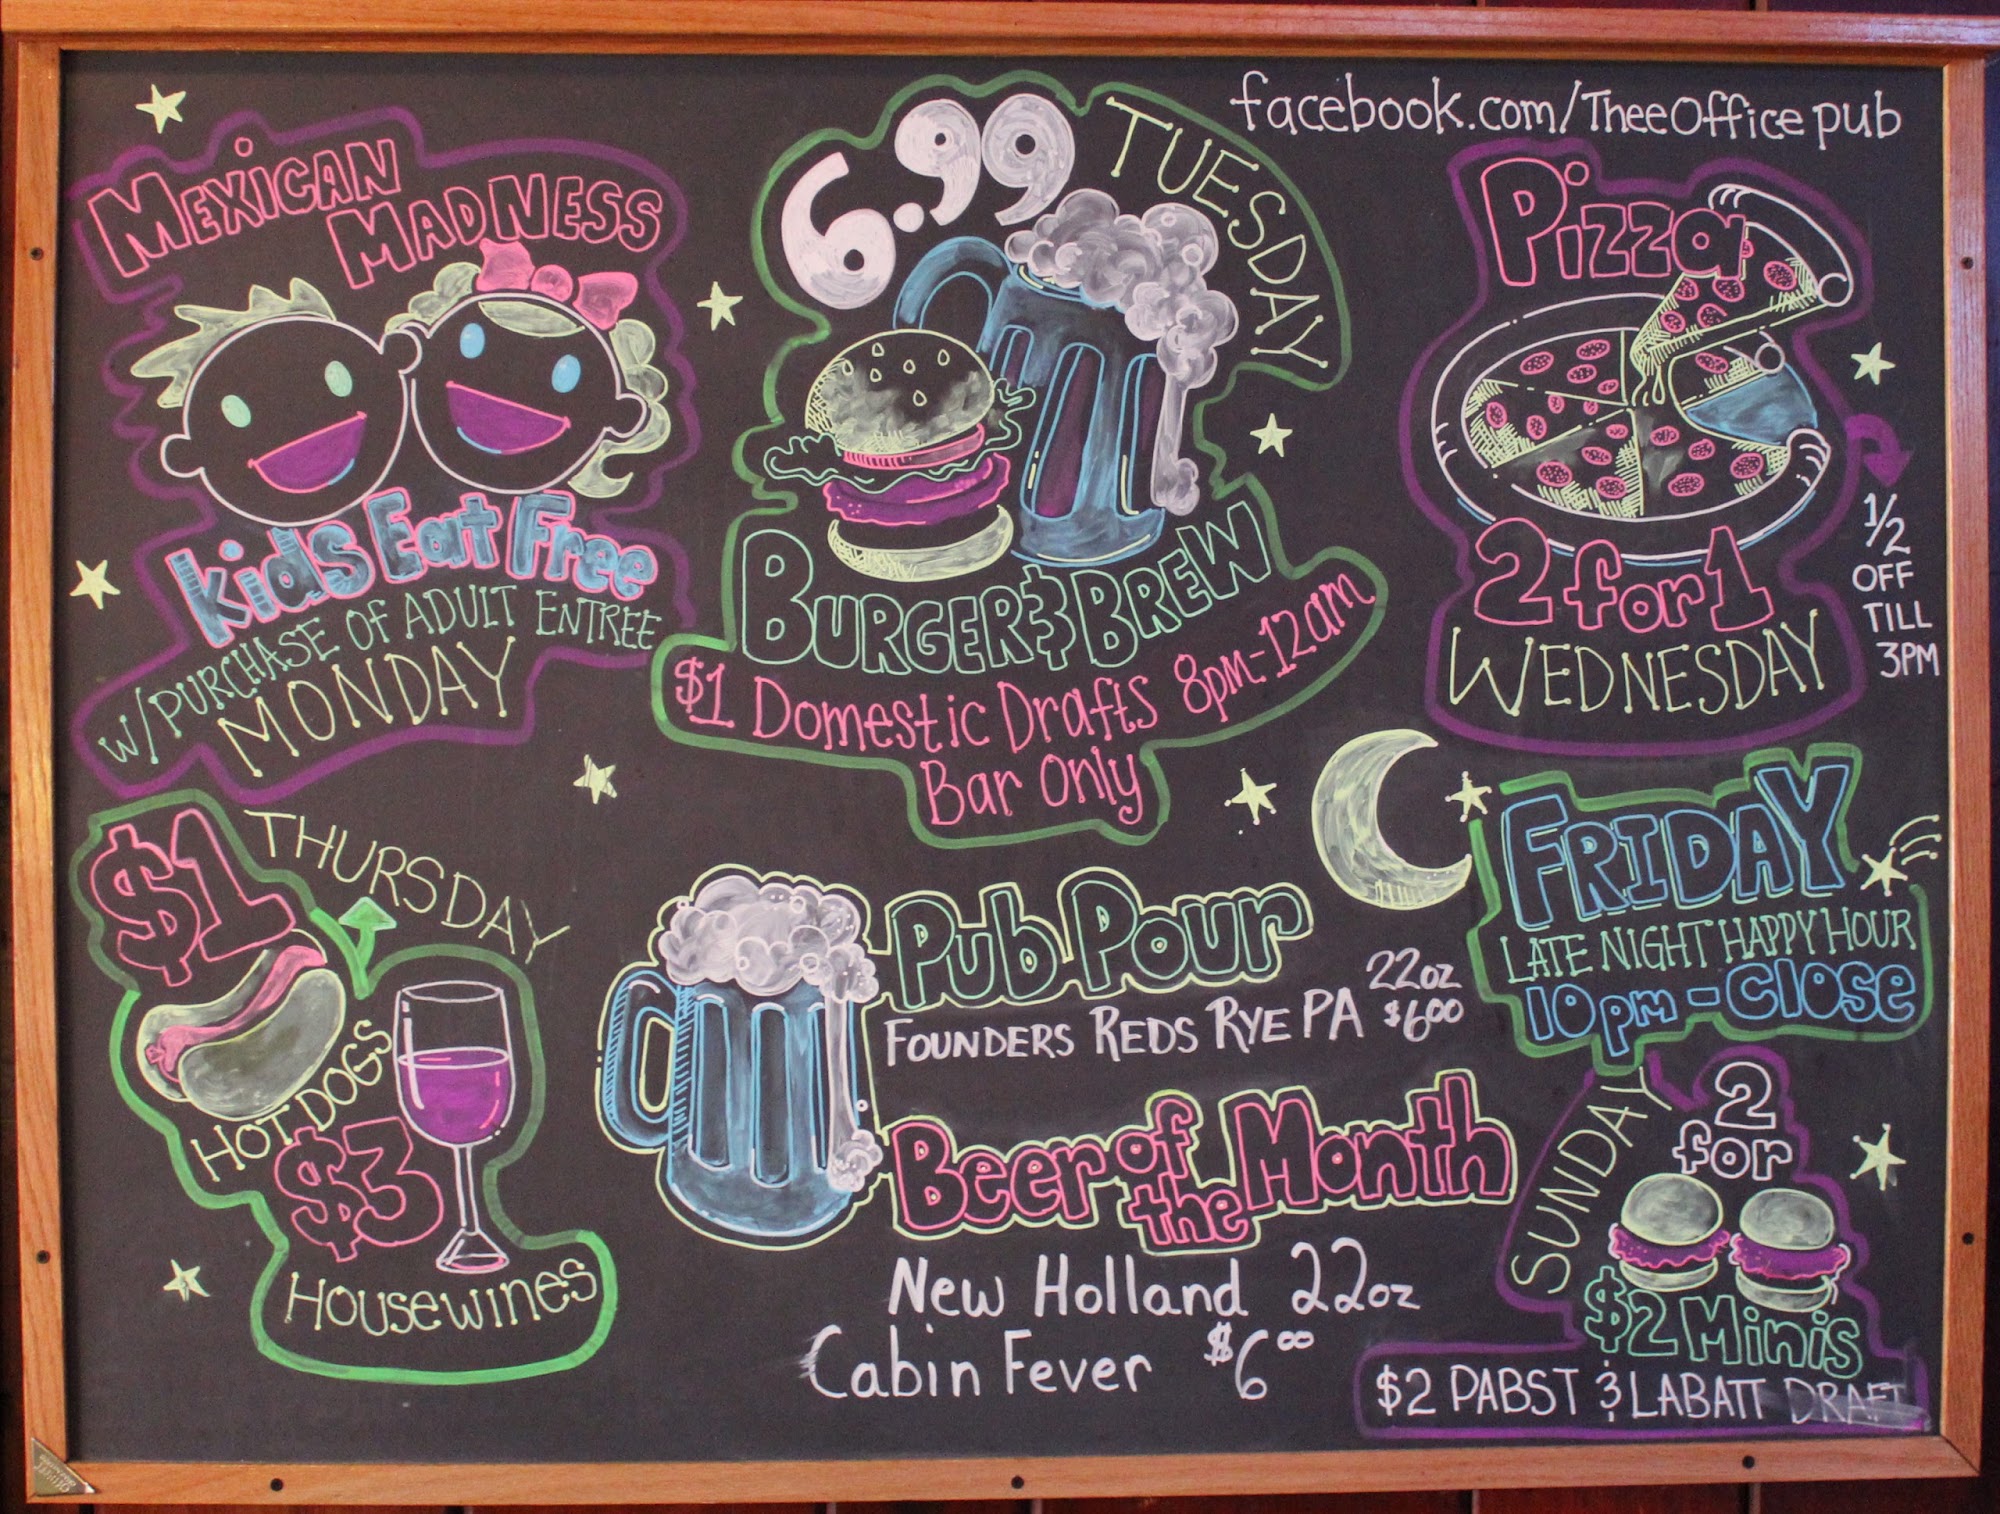 facebook.com/TheeOfficepub
MEXICAN
MADNESS
Kids Eat Free
W/PURCHASE OF ADULT ENTREE
MONDAY
6.99
TUESDAY
BURGER & BREW
$1 Domestic Drafts 8pm-12am
Bar Only
Pizza
2 for 1
WEDNESDAY
1/2
OFF
TILL
3PM
$1
THURSDAY
HOT DOGS
$3
HOUSEWINES
Pub Pour
FOUNDERS REDS RYE PA
22oz
$6.00
Beer of the Month
New Holland 22oz
Cabin Fever $6.00
FRIDAY
LATE NIGHT HAPPY HOUR
10pm-Close
SUNDAY
2
for
$2 Minis
$2 PABST & LABATT DRAFT